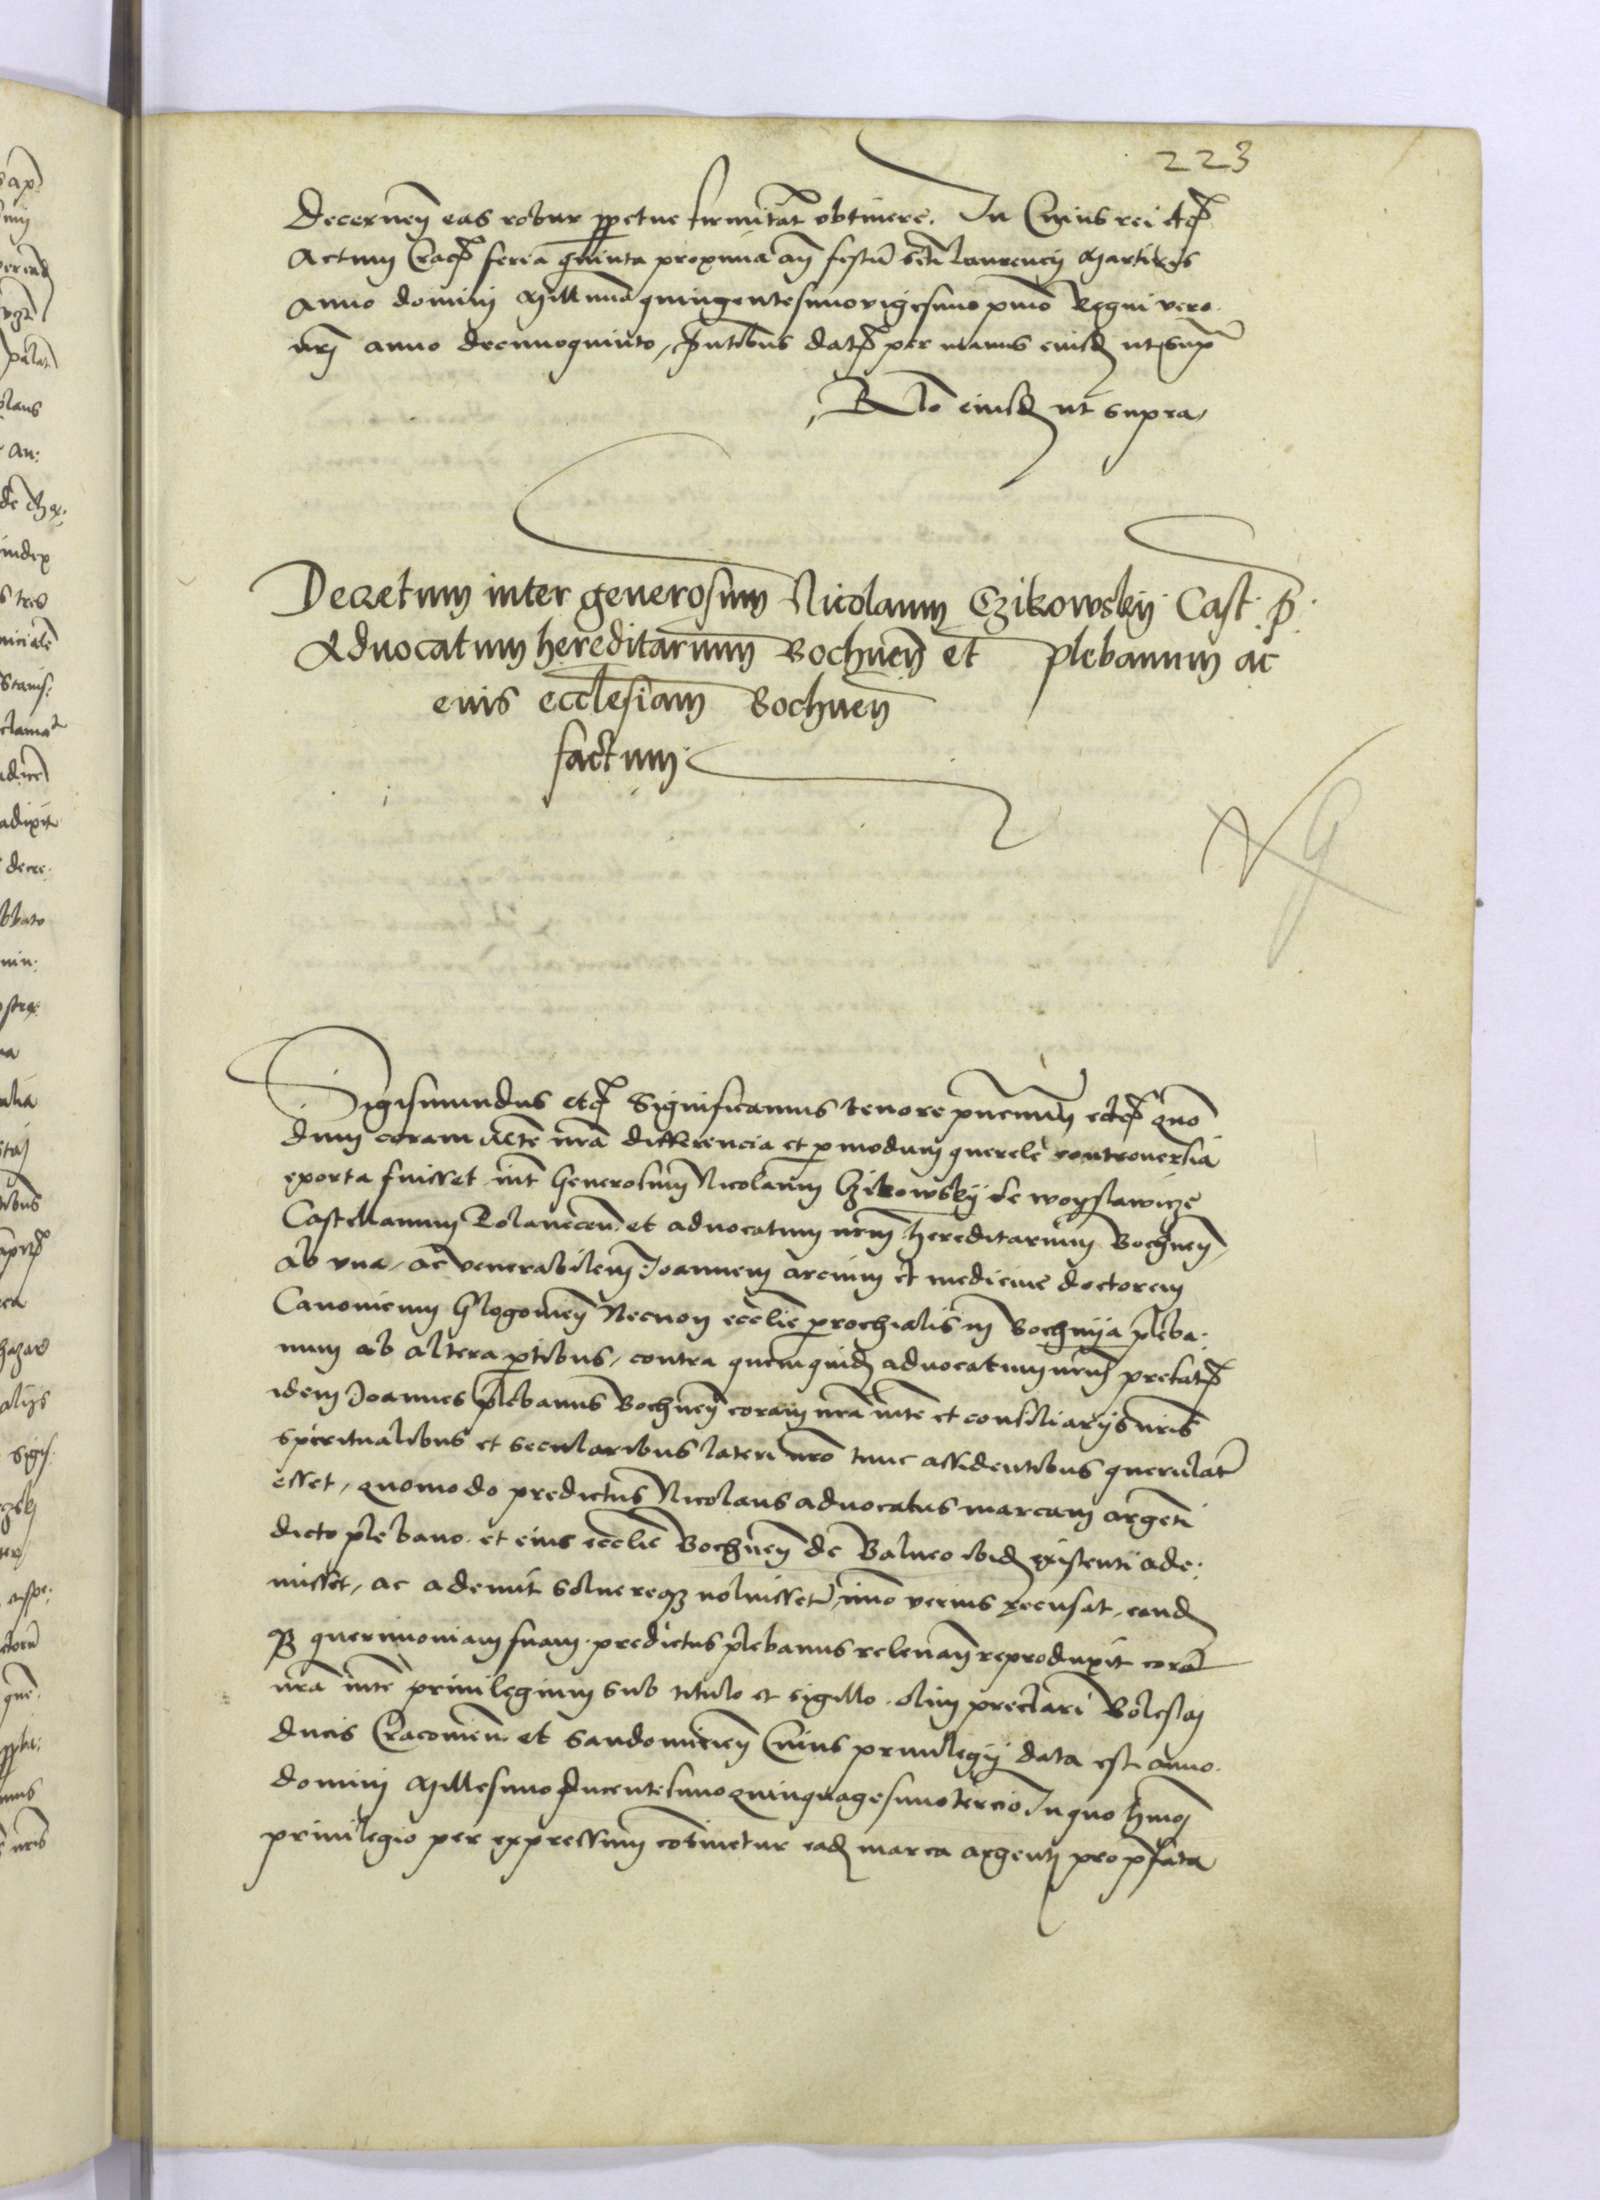 223
Decernen eas robur ppetue firmitat obtinere. In Cuius rei etc
Actum Crac feria quinta proxima an festu scti Laurencij Martiris
Anno domini Millimo quingentesimo vigesimo pmo Regni vero
nrj anno decimoquinto, pntibus dat per manus eiusd ut supra
Rlo eiusd ut supra
Decretum inter generosum Nicolaum Czikowskij Cast: P:
Advocatum hereditarium Bochnen et plebanum ac
eius ecclesiam Bochnen
factum
Sigismundus etc Significamus tenore pncium etc quo
dum coram Mte nra differencia et p modum querele controversia
exorta fuisset int Generosum Nicolaum Czikowskij de woyslawicze
Castellanum Polanecen et advocatum nrm hereditarium Bochnen
ab vna, ac venerabilem Joannem arcium et medicine doctorem
Canonicum Glogovien Necnon ecclie parochialis in Bochnija pleba
num ab altera ptibus, contra quem quid advocatum nrm prefat
idem Joannes plebanus Bochnen coram nra mte et consiliarijs nris
spiritualibus et secularibus lateri nro tunc assidentibus querulat
esset, quomodo predictus Nicolaus advocatus marcam argeti
dicto plebano et eius ecclie Bochnen de Balneo ibid existenti ade:
misset, ac ademit solvereq noluisset, imo verius recusat, eand
q querimoniam suam predictus plebanus relevan reproduxit cora
nra mte privilegium sub titulo et sigillo olim preclari Boleslaj
ducis Cracovien et Sandomirien Cuius privilegij data est anno
domini Millesimo ducentesimo quinquagesimotercio In quo hmoj
privilegio per expressum cotinetur ead marca argentj pro pfata